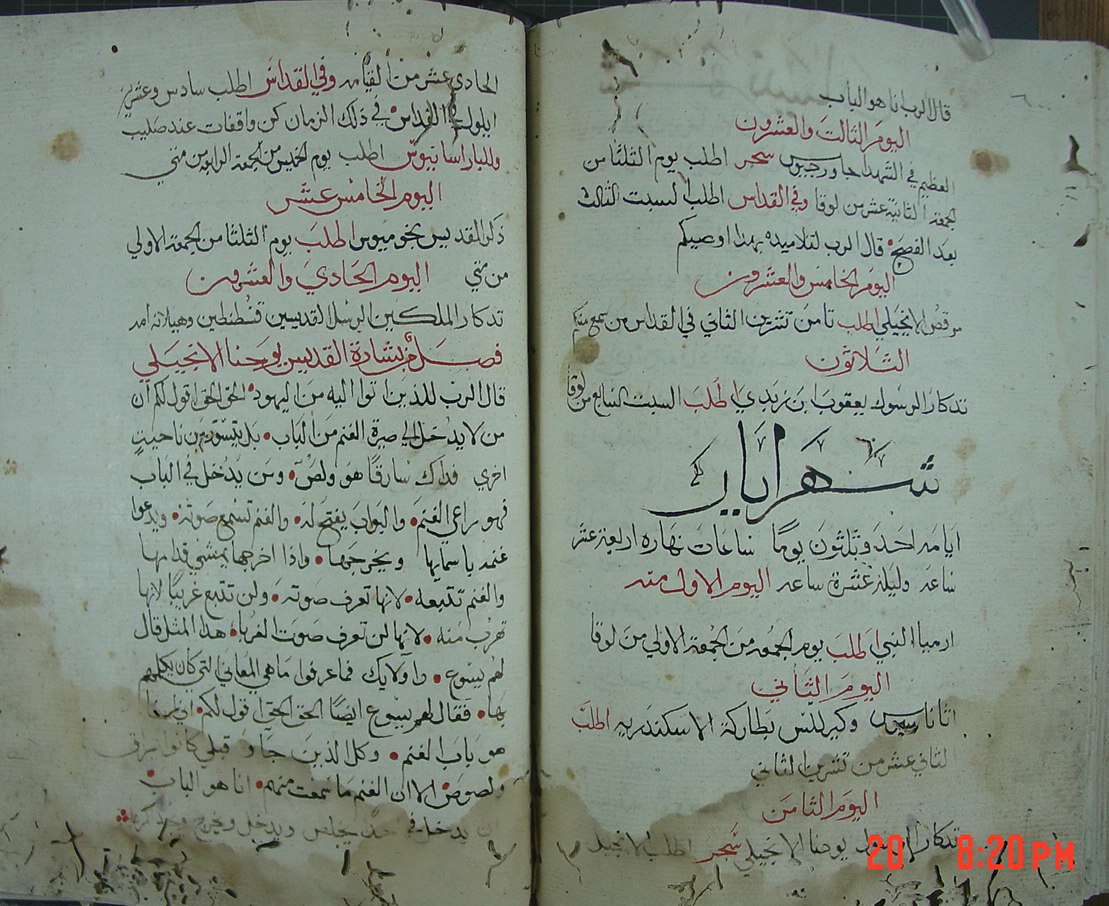 قال الرب انا هو الباب
اليوم الثالث والعشرون
العظيم في الشهدا جاورجيوس سحر اطلب يوم الثلثا من
الجمعة الثانية عشر من لوقا وفي القداس اطلب السبت الثالث
بعد الفصح قال الرب لتلاميذه بهذا اوصيكم
اليوم الخامس والعشرون
مرقص الانجيلي اطلب ثامن تشرين الثاني في القداس من سمع منكم
الثلاثون
تدكار الرسول يعقوب ابن زبدي اطلب السبت السابع من لوقا
شهر ايار
ايامه احد وثلثون يومًا ساعات نهاره اربعة عشر
ساعة وليله عشرة ساعه اليوم الاول منه
ارميا النبي اطلب يوم الجمعه من الجمعة الاولي من لوقا
اليوم الثاني
اثاناسيوس وكيرللس بطاركة الاسكندريه اطلب
الثاني عشر من تشرين الثاني
اليوم الثامن
تدكار الرسول يوحنا الانجيلي سحر اطلب الانجيل
الحادي عشر من القيامه وفي القداس اطلب سادس وعشرين
ايلول القداس في ذلك الزمان كن واقفات عند صليب
وللبار ارسانيوس اطلب يوم الخميس من الجمعة الرابعه من متي
اليوم الخامس عشر
ذكر القديس بخوميوس اطلب يوم الثلثا من الجمعة الاولي
من متي اليوم الحادي والعشرون
تدكار الملكين الرسل القديسين قسطنطين وهيلانه امه
فصل من بشارة القديس يوحنا الانجيلي
قال الرب للذين اتوا اليه من اليهود الحق الحق اقول لكم ان
من لا يدخل الي صيرة الغنم من الباب بل يتسور من ناحية
اخري فداك سارقًا هو ولص ومن يدخل في الباب
فهو راعي الغنم والبواب يفتح له والغنم تسمع صوته ويدعوا
غنمه باسمايها ويخرجها واذا اخرجها يمشي قدامها
والغنم تتبعه لانها تعرف صوته ولن تتبع غريبًا لانها
تهرب منه لانها لن تعرف صوت الغربا هذا المثل قال
لهم يسوع واولايك فما عرفوا ما هي المعاني التي كان يكلمهم
بها فقال لهم يسوع ايضًا الحق الحق اقول لكم انني انا
هو باب الغنم وكل الذين جاوا قبلي كانوا سراق
ولصوص الا ان الغنم ما سمعت منهم انا هو الباب
يدخل في يخلص ويدخل ويخرج
20 8:20 PM